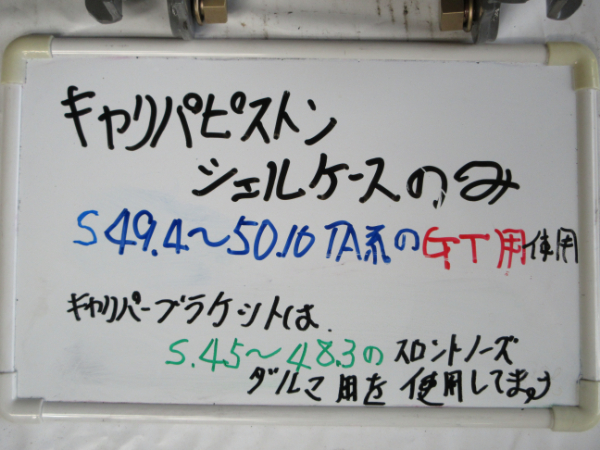 キャリパピストン
シェルケースのみ
S49.4〜50.10TA系のGT用使用
キャリパーブラケットは
S.45〜48.3のスロントノーズ
ダルマ用を使用してます